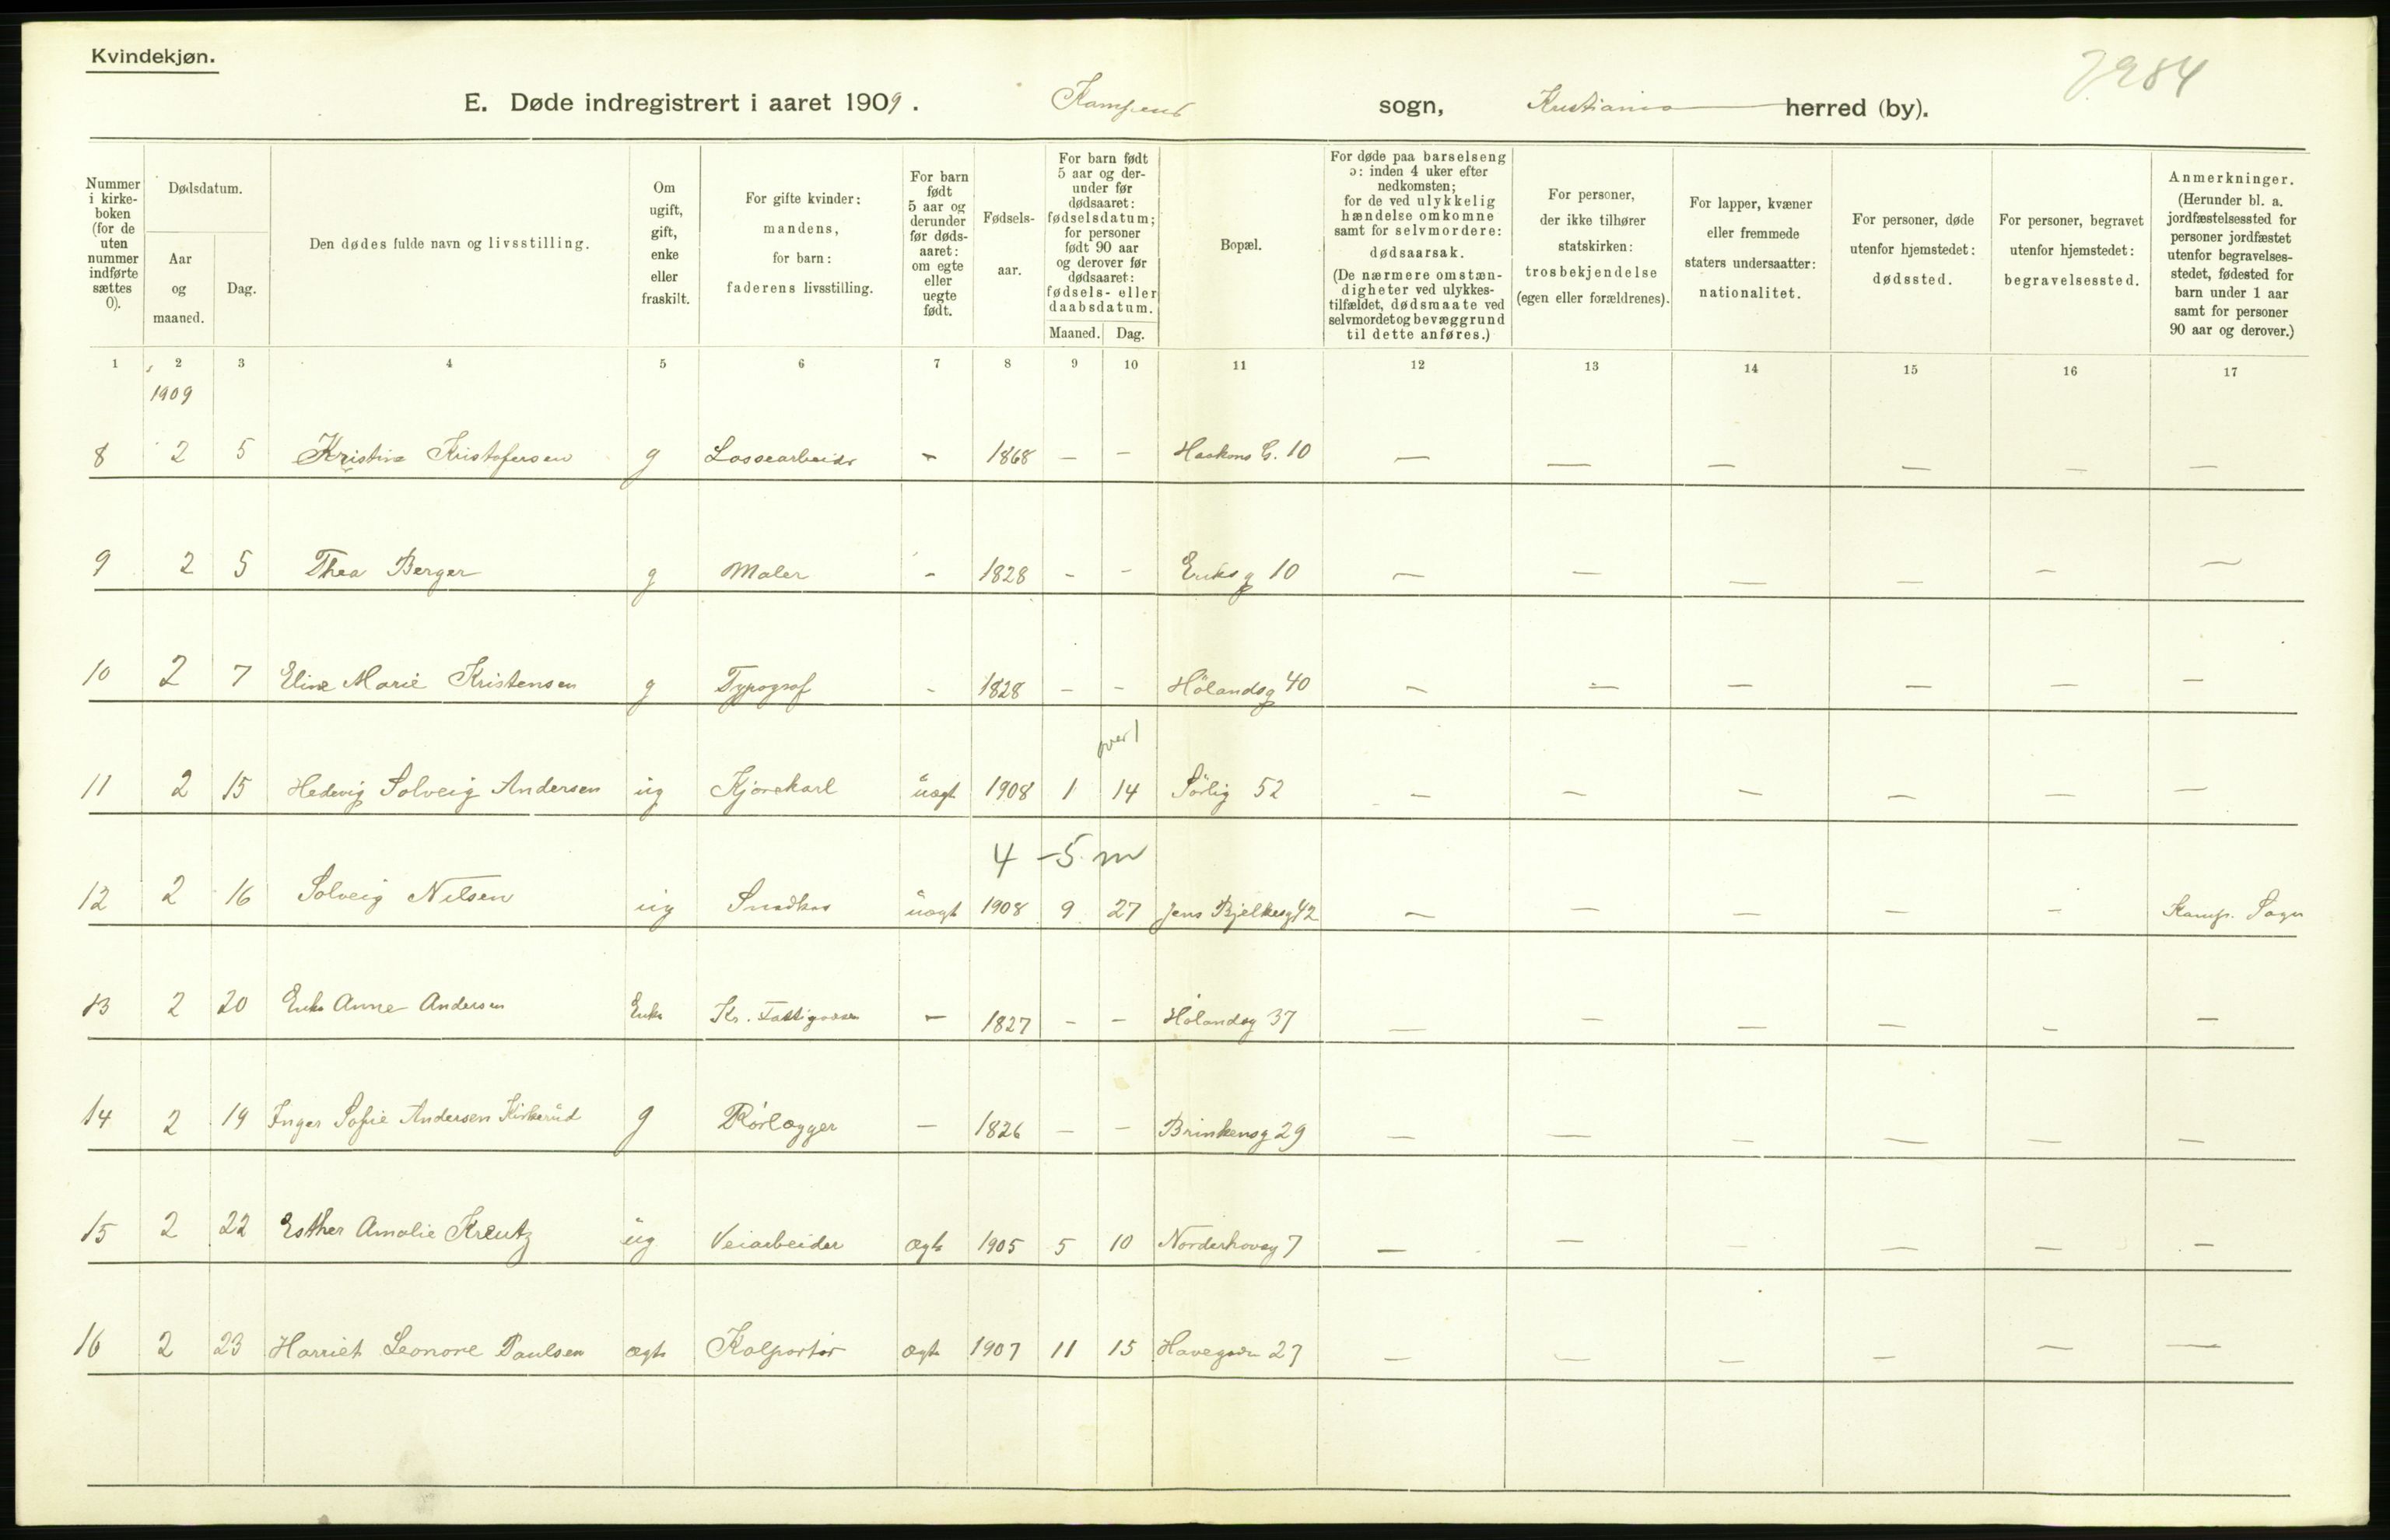 Kvindekjøn.
E. Døde indregistrert i aaret 1909. Kampens sogn, Kristiania herred (by).
Nummer i kirkeboken (for de uten nummer indførte sættes 0).
Dødsdatum.
Aar og maaned.
Dag.
Den dødes fulde navn og livsstilling.
Om ugift, gift, enke eller fraskilt.
For gifte kvinder: mandens, for barn: faderens livsstilling.
For barn født 5 aar og derunder før dødsaaret: om egte eller uegte født.
Fødselsaar.
For barn født 5 aar og derunder før dødsaaret: fødselsdatum; for personer født 90 aar og derover før dødsaaret: fødsels- eller daabsdatum.
Maaned. Dag.
Bopæl.
For døde paa barselseng ɔ: inden 4 uker efter nedkomsten; for de ved ulykkelig hændelse omkomne samt for selvmordere: dødsaarsak. (De nærmere omstændigheter ved ulykkestilfældet, dødsmaate ved selvmordet og bevæggrund til dette anføres.)
For personer, der ikke tilhører statskirken: trosbekjendelse (egen eller forældrenes).
For lapper, kvæner eller fremmede staters undersaatter: nationalitet.
For personer, døde utenfor hjemstedet: dødssted.
For personer, begravet utenfor hjemstedet: begravelsessted.
Anmerkninger. (Herunder bl. a. jordfæstelsessted for personer jordfæstet utenfor begravelsesstedet, fødested for barn under 1 aar samt for personer 90 aar og derover.)
1 2 3 4 5 6 7 8 9 10 11 12 13 14 15 16 17
1909
8 2 5 Kristine Kristofersen g Lossearbeider - 1868 - - Haakons G. 10 - - - - - -
9 2 5 Thea Berger g Maler - 1828 - - Eriksg 10 - - - - - -
10 2 7 Eline Marie Kristensen g Typograf - 1828 - - Hölandsg 40 - - - - - -
over 1
11 2 15 Hedevig Solveig Andersen ug Kjørekarl uægt 1908 1 14 Sörlig 52 - - - - - -
4-5 m
12 2 16 Solveig Nilsen ug Snedker uægt 1908 9 27 Jens Bjelkesg 42 - - - - - Kamp. Sogn
13 2 20 Enke Anne Andersen Enke Kr. Fattigvæsen - 1827 - - Hölandsg 37 - - - - - -
14 2 19 Inger Sofie Andersen Kirkerud g Rörlægger - 1826 - - Brinkensg 29 - - - - - -
15 2 22 Esther Amalie Kreutz ug Veiarbeider ægte 1905 5 10 Norderhovsg 7 - - - - - -
16 2 23 Harriet Leonore Paulsen ægte Kolportör ægte 1907 11 15 Havegaden 27 - - - - - -